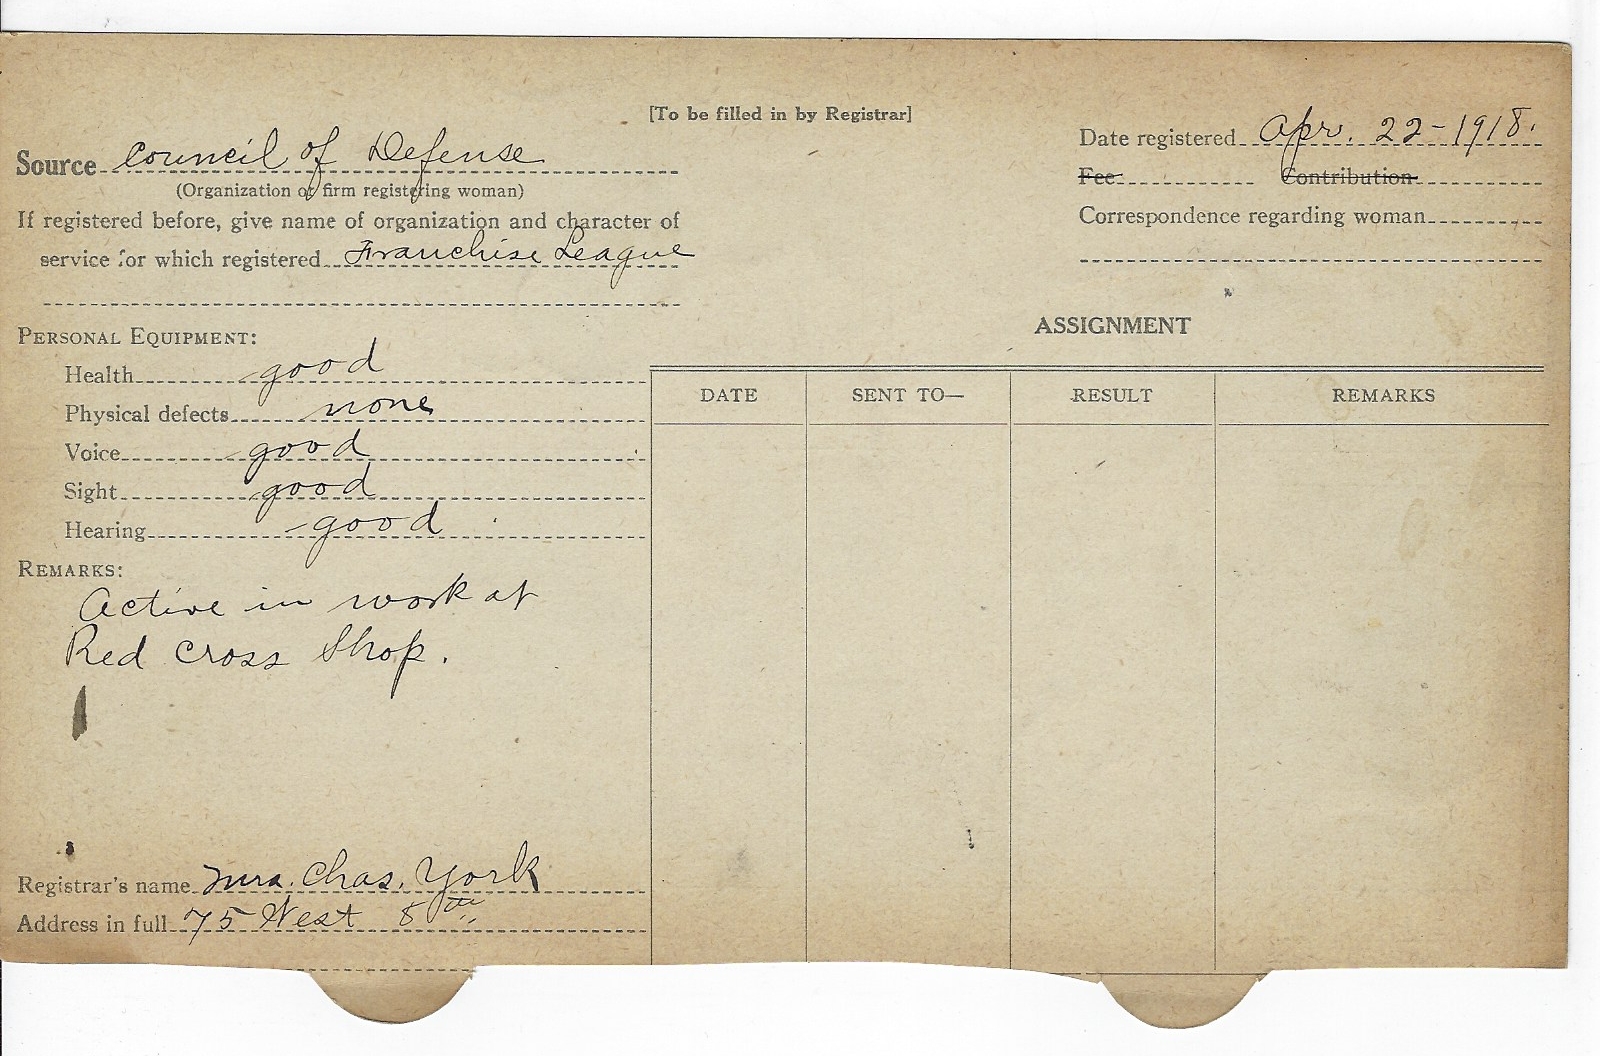 [To be filled in by Registrar]
Source Council of Defense
(Organization or firm registering woman)
If registered before, give name of organization and character of
service for which registered Franchise League
Date registered Apr. 22-1918.
Fee Contribution
Correspondence regarding woman
PERSONAL EQUIPMENT:
Health good
Physical defects none
Voice good
Sight good
Hearing good
REMARKS:
Active in work at
Red Cross Shop.
Registrar's name Mrs. Chas. York
Address in full 75 West 8th
ASSIGNMENT
DATE SENT TO— RESULT REMARKS